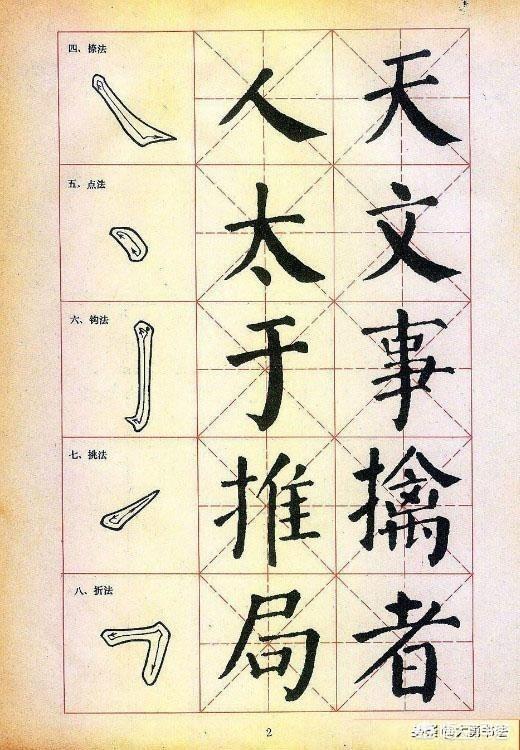 四、捺法
人 天
五、点法
太 文
六、钩法
于 事
七、挑法
推 擒
八、折法
局 者
2
头条 @大勇书法